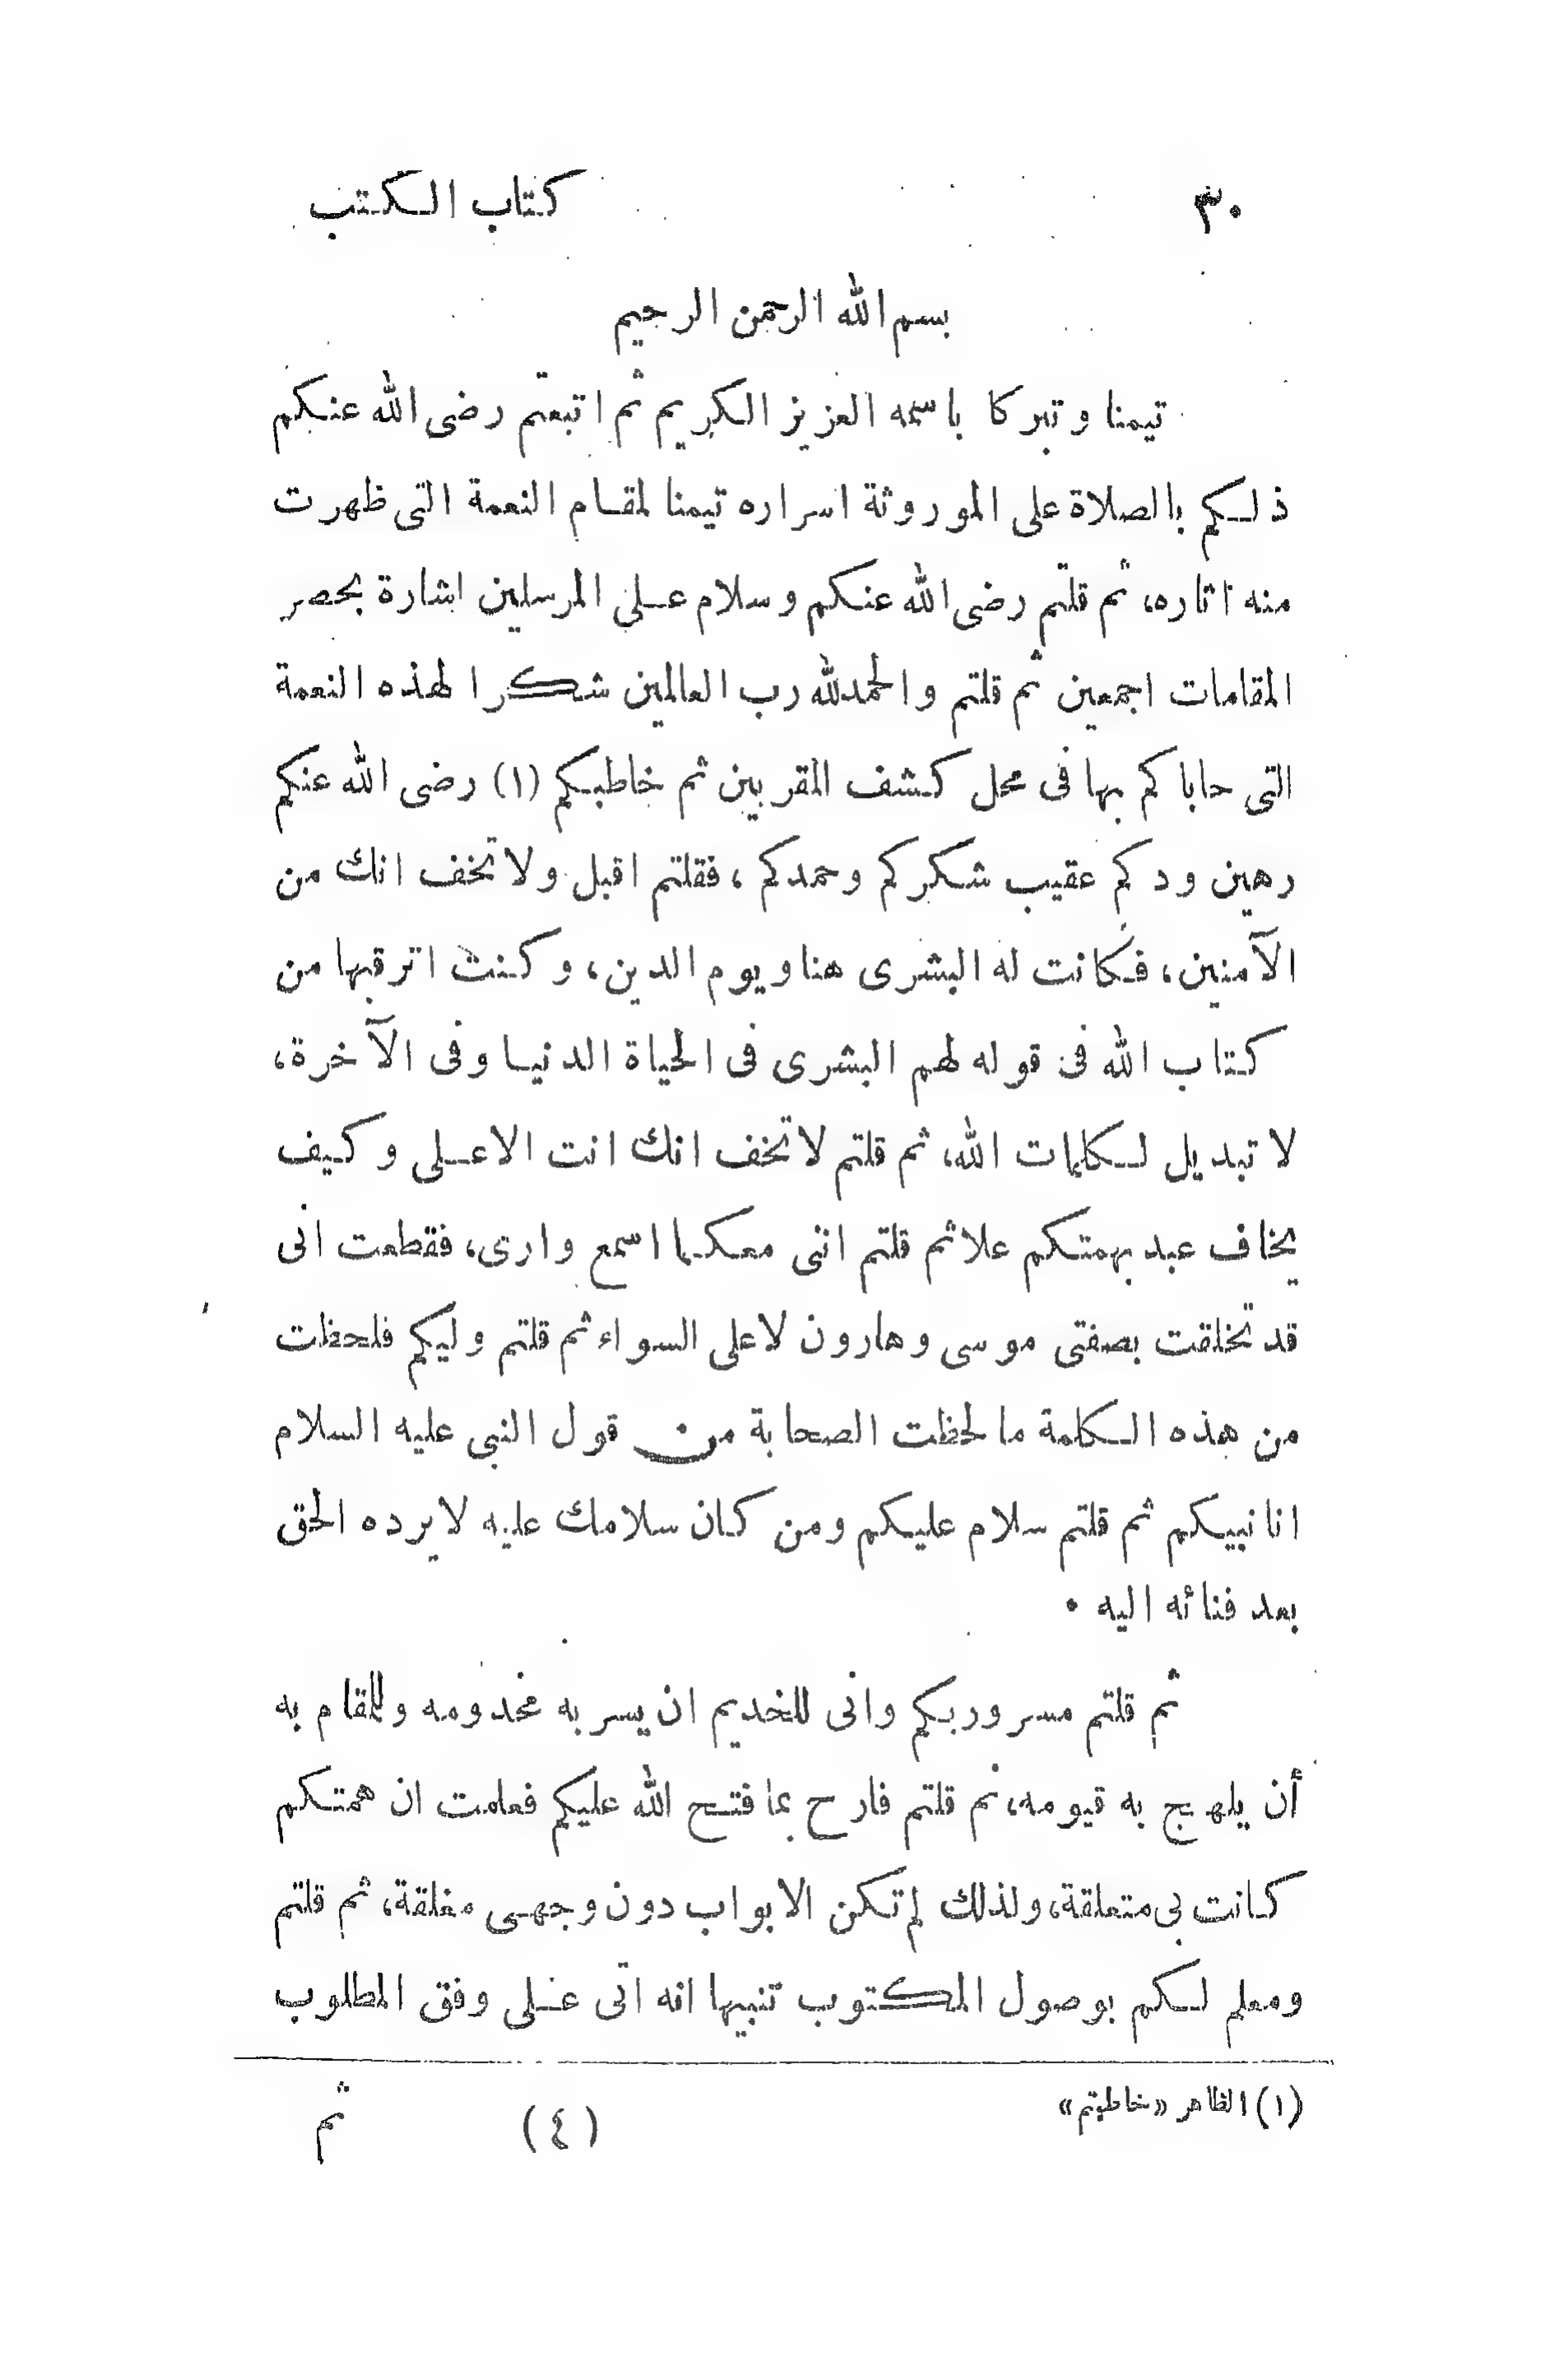 ٣٠ كتاب الكتب
بسم الله الرحمن الرحيم
تيمنا وتبركا باسمه العزيز الكريم ثم اتبعتم رضى الله عنكم
ذلكم بالصلاة على الموروثة اسراره تيمنا لمقام النعمة التى ظهرت
منه آثاره، ثم قلتم رضى الله عنكم وسلام على المرسلين اشارة بحصر
المقامات اجمعين ثم قلتم والحمدلله رب العالمين شكرا لهذه النعمة
التى حاباكم بها فى محل كشف المقربين ثم خاطبكم (١) رضى الله عنكم
رهين ودكم عقيب شكركم وحمدكم، فقلتم اقبل ولا تخف انك من
الآمنين، فكانت له البشرى هنا ويوم الدين، وكنت اترقبها من
كتاب الله فى قوله لهم البشرى فى الحياة الدنيا وفى الآخرة،
لا تبديل لكلمات الله، ثم قلتم لا تخف انك انت الاعلى وكيف
يخاف عبد بهمتكم علا ثم قلتم اننى معكما اسمع وارى، فقطعت انى
قد تخلقت بصفتى موسى وهارون لا على السواء ثم قلتم وليكم فلحظت
من هذه الكلمة ما لحظت الصحابة من قول النبى عليه السلام
انا نبيكم ثم قلتم سلام عليكم ومن كان سلامك عليه لا يرده الحق
بعد فنائه اليه •
ثم قلتم مسرور بكم وانى للخديم ان يسر به مخدومه وللمقام به
أن يلهج به قيومه، ثم قلتم فارح بما فتح الله عليكم فعلمت ان همتكم
كانت بى متعلقة، ولذلك لم تكن الابواب دون وجهى مغلقة، ثم قلتم
ومعلم لكم بوصول المكتوب تنبيها انه اتى على وفق المطلوب
(١) الظاهر «خاطبتم»
(٤) ثم